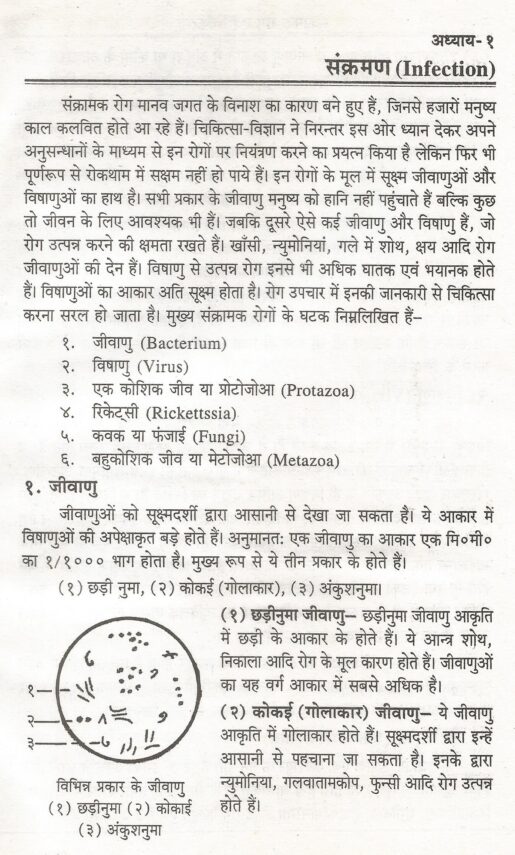 अध्याय-१
संक्रमण (Infection)
संक्रामक रोग मानव जगत के विनाश का कारण बने हुए हैं, जिनसे हजारों मनुष्य
काल कलवित होते आ रहे हैं। चिकित्सा-विज्ञान ने निरन्तर इस ओर ध्यान देकर अपने
अनुसन्धानों के माध्यम से इन रोगों पर नियंत्रण करने का प्रयत्न किया है लेकिन फिर भी
पूर्णरूप से रोकथाम में सक्षम नहीं हो पाये हैं। इन रोगों के मूल में सूक्ष्म जीवाणुओं और
विषाणुओं का हाथ है। सभी प्रकार के जीवाणु मनुष्य को हानि नहीं पहुंचाते हैं बल्कि कुछ
तो जीवन के लिए आवश्यक भी हैं। जबकि दूसरे ऐसे कई जीवाणु और विषाणु हैं, जो
रोग उत्पन्न करने की क्षमता रखते हैं। खाँसी, न्युमोनियां, गले में शोथ, क्षय आदि रोग
जीवाणुओं की देन हैं। विषाणु से उत्पन्न रोग इनसे भी अधिक घातक एवं भयानक होते
हैं। विषाणुओं का आकार अति सूक्ष्म होता है। रोग उपचार में इनकी जानकारी से चिकित्सा
करना सरल हो जाता है। मुख्य संक्रामक रोगों के घटक निम्नलिखित हैं–
१. जीवाणु (Bacterium)
२. विषाणु (Virus)
३. एक कोशिक जीव या प्रोटोजोआ (Protazoa)
४. रिकेट्सी (Rickettssia)
५. कवक या फंजाई (Fungi)
६. बहुकोशिक जीव या मेटोजोआ (Metazoa)
१. जीवाणु
जीवाणुओं को सूक्ष्मदर्शी द्वारा आसानी से देखा जा सकता है। ये आकार में
विषाणुओं की अपेक्षाकृत बड़े होते हैं। अनुमानतः एक जीवाणु का आकार एक मि०मी०
का १/१००० भाग होता है। मुख्य रूप से ये तीन प्रकार के होते हैं।
(१) छड़ी नुमा, (२) कोकई (गोलाकार), (३) अंकुशनुमा।
(१) छड़ीनुमा जीवाणु– छड़ीनुमा जीवाणु आकृति
में छड़ी के आकार के होते हैं। ये आन्त्र शोथ,
निकाला आदि रोग के मूल कारण होते हैं। जीवाणुओं
का यह वर्ग आकार में सबसे अधिक है।
(२) कोकई (गोलाकार) जीवाणु– ये जीवाणु
आकृति में गोलाकार होते हैं। सूक्ष्मदर्शी द्वारा इन्हें
आसानी से पहचाना जा सकता है। इनके द्वारा
न्युमोनिया, गलवातामकोप, फुन्सी आदि रोग उत्पन्न
होते हैं।
१–
२–
३–
विभिन्न प्रकार के जीवाणु
(१) छड़ीनुमा (२) कोकाई
(३) अंकुशनुमा